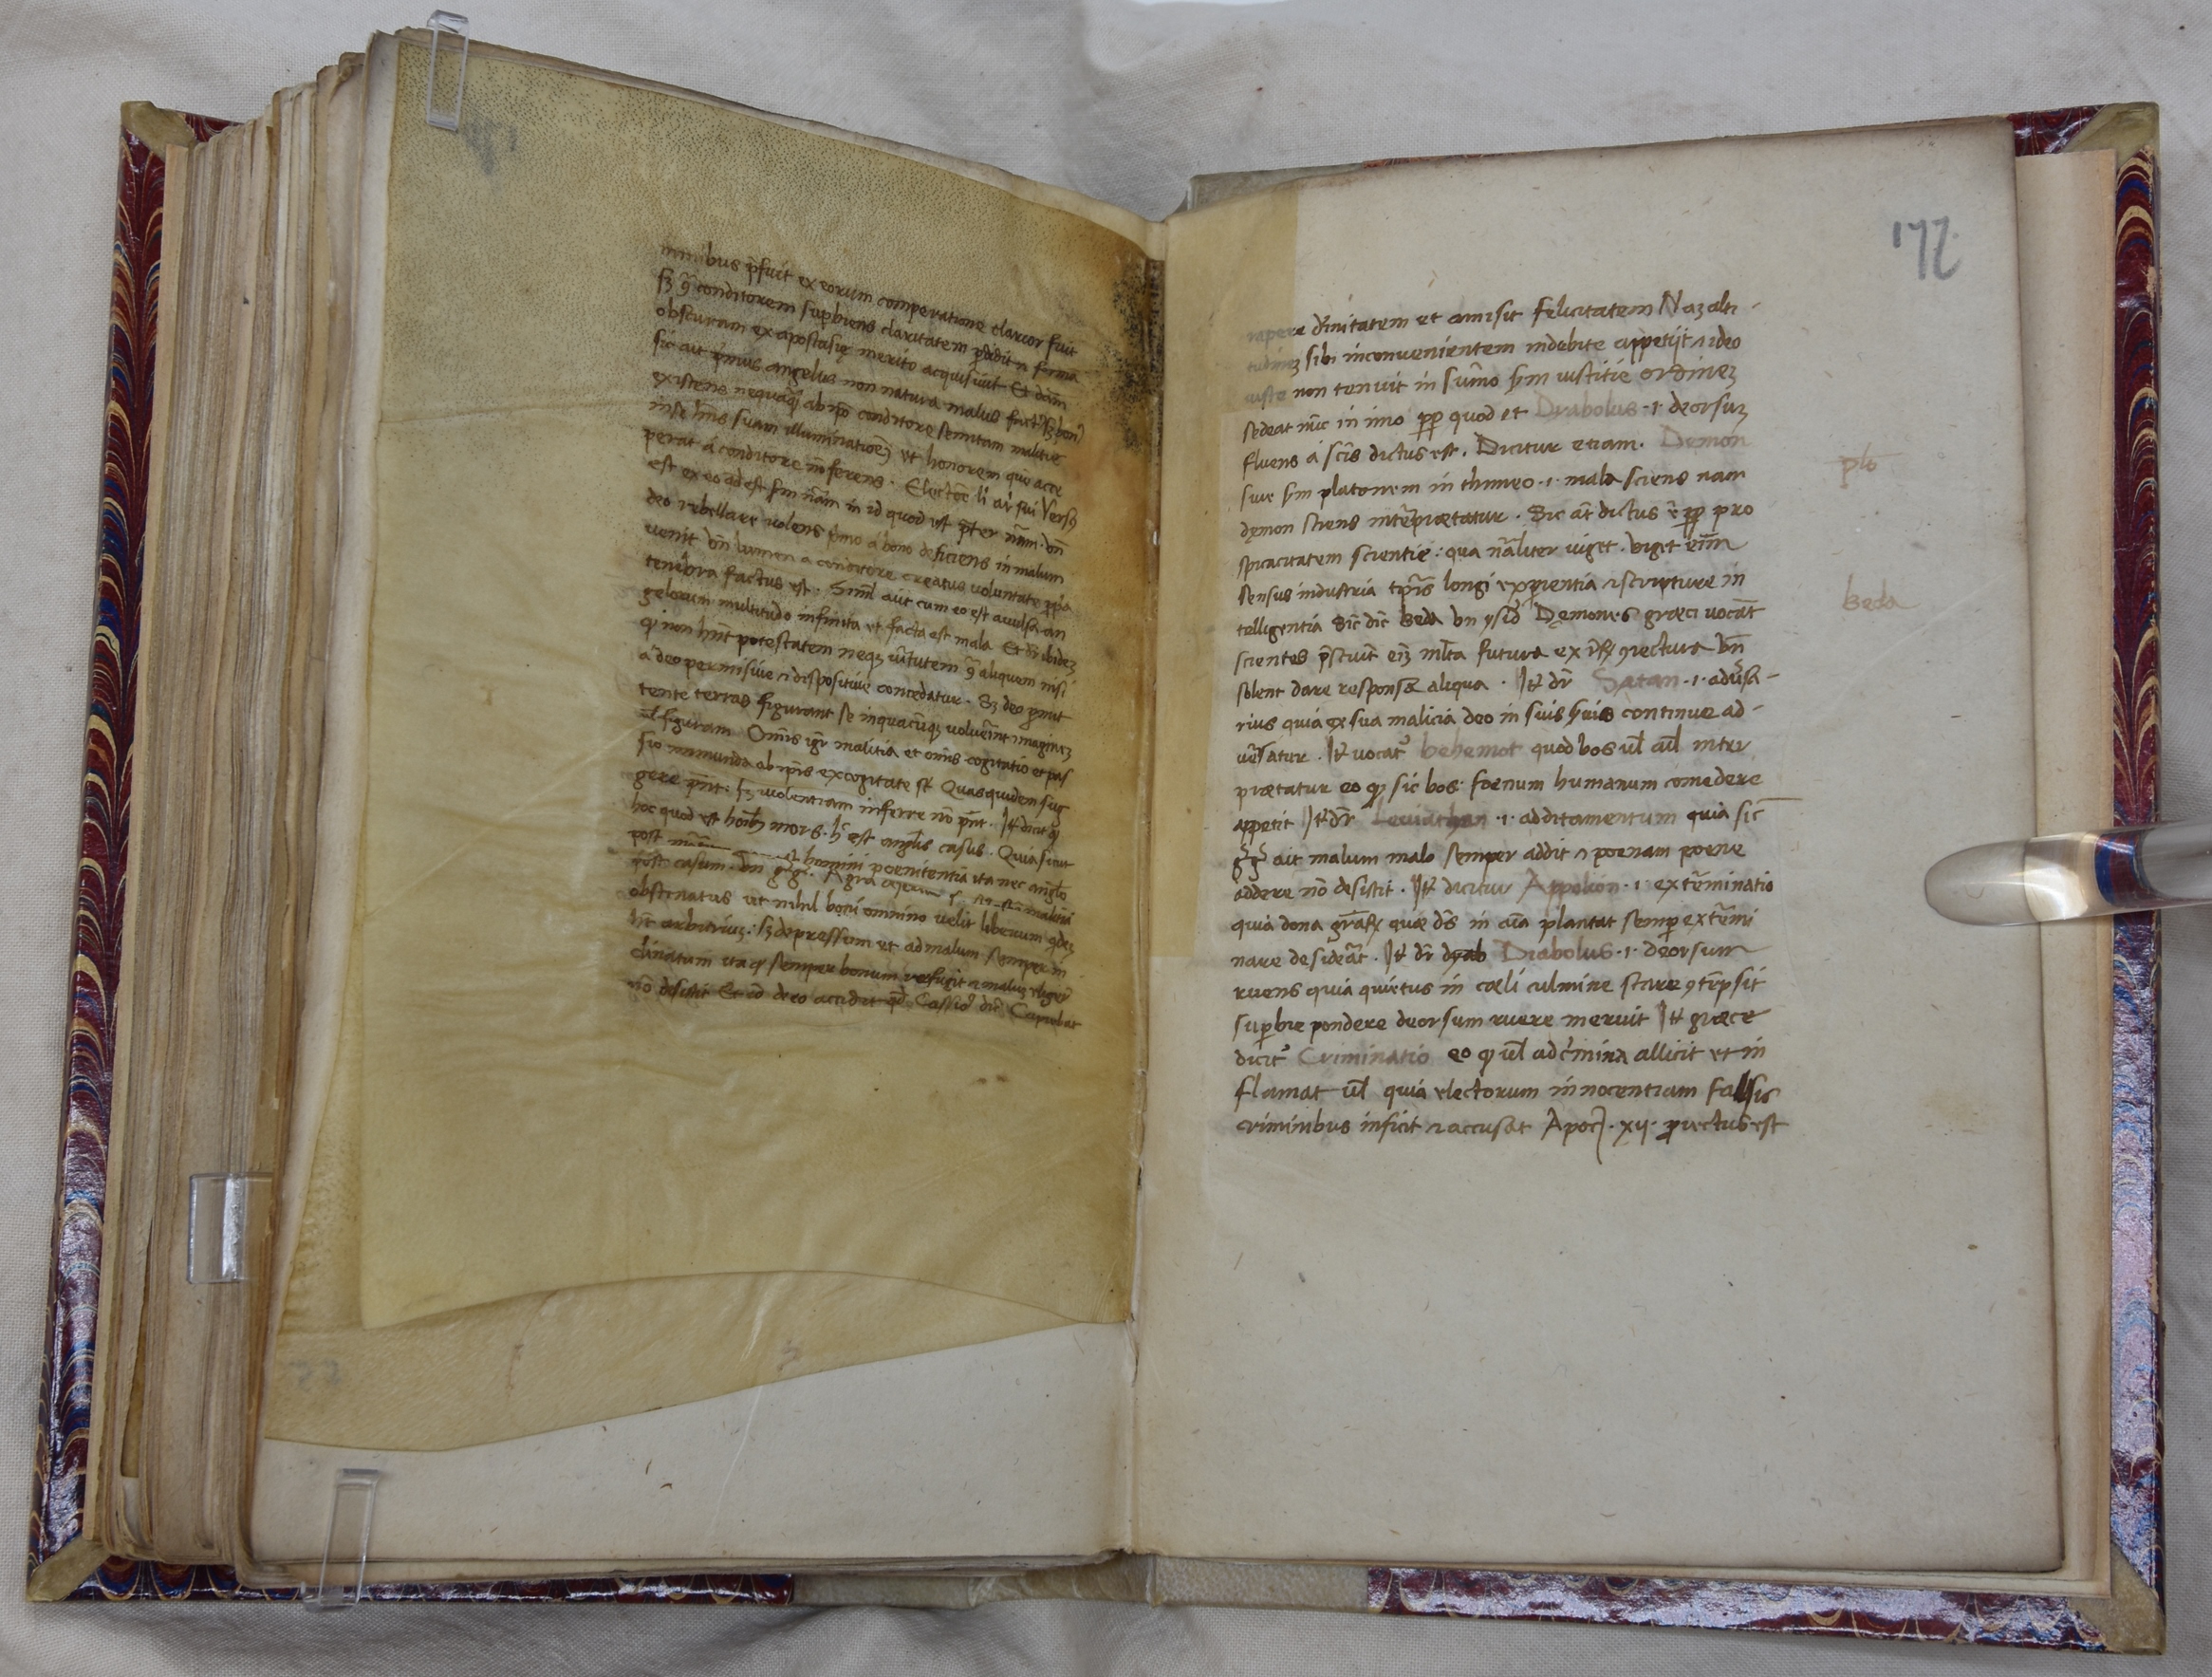 minibus p̄fuit ex eorum comperatione clarior fuit
sꝫ ꝯ̄ conditorem suꝑbiens claritatem ꝑdidit ⁊ forma
obscuram ex apostasię merito acquisiuit Et dām
sic ait p̄mus angelus non natura malus fuit sꝫ bonꝰ
existens nequāqꝫ ab ip̄o conditore semitam malitie
in se hn̄s suam illuminatioēꝫ ut honorem que acce
perat á conditore īn ferens. Electōē lī ar̄ sui Versꝰ
est ex eo ad est scm̄ nām in id quod est p̄ter nām. vn̄
deo rebellare uolens p̄mo á bono deficiens in malum
uenit vn̄ lumen a conditore creatus voluntate ꝓpa
tenēbra factus est. Simĺ aūt cum eo est auulsa an
gelorum multitudo infinita et facta est mala Et dr̄ ibidēꝫ
ꝙ non hn̄t potestatem neqꝫ uīrtutem ꝯ̄ aliquem nisi
a deo permisiue ⁊ dispositiue concedatur. Sꝫ deo ꝑmit
tente terras figurant se in quacūqꝫ voluēint imagineꝫ
ul̄ figuram Om̄is igr̄ malitia et om̄is cogitatio et pas
sio inmunda ab ip̄is excogitate st̄ Quas quidem sug
gere p̄nt: sꝫ uiolentiam inferre nō p̄nt. Iꝉ dicit ꝙ
hoc quod est hoībꝫ mors. hͦ est angĺis casus. Quia sicut
post homini poenitentia ita nec anglō
post casum. vn̄ malitia
obstinatus ut nihil boni omnino velit liberum qdeꝫ
hr̄ arbitriuꝫ: sꝫ depressum et ad malum semper in
clinatum ita ꝙ semper bonum refugit ⁊ maluꝫ eligeꝝ
nō desistit Et id deo accidit qd̄ Cassioꝰ dic̄ Captabat
172
rapere diuinitatem et amisit felicitatem Naꝫ alti-
tudineꝫ sibi inconuenientem indebite appetijt ⁊ ideo
iuste non tenuit in summo scm̄ iustitie ordineꝫ
sedeat nūc in imo ꝓp quod et Dyabolus ·i· deorsuꝫ
fluens á scīs dictus est. Dicitur etiam. Demon
siue scm̄ platonem in thimeo ·i· mala sciens nam
dęmon sciens intērpraetatur. Sic aūt dictus ē ꝓp pro
spicacitatem scientię: qua nāliter uiget. viget eīm
sensus industria tp̄ris longi exꝑientia ⁊ scripture in
telligentia Sic̄ dic̄ Beda vn ysid̄ Dęmones graeci vocāt
scientes p̄sciūt eīꝫ mĺta futura ex rerꝝ ꝯiectura vn̄
solent dare responsa aliqua. Iꝉ dr̄ Satan ·i· aduersa-
rius quia ex sua malicia deo in suis seruis continue ad-
uērsatur. Iꝉ uocatꝰ behemot quod bos ul̄ aīal inter
praetatur eo ꝙ sic bos: foenum humanum comedere
appetit Iꝉ dr̄ Leuiathan ·i· additamentum quia sic̄
grēg ait malum malo semper addit ⁊ poenam poene
addere nō desistit. Iꝉ dicitur Appolion ·i· extērminatio
quia dona gratiaꝝ quae dē̄s in aīa plantat semꝑ extērmi
nare desiderat. Iꝉ dr̄ dyab Diabolus ·i· deorsum
ruens quia quietus in caeli culmine stare ꝯtēpsit
suꝑbie pondere deorsum ruere meruit Iꝉ graece
dicitꝰ Criminatio eo ꝙ ul̄ ad crimina allicit et in
flamat ul̄ quia electorum innocentiam falsis
criminibus inficit ⁊ accusat Apoc. xij. proiectus est
plō
beda